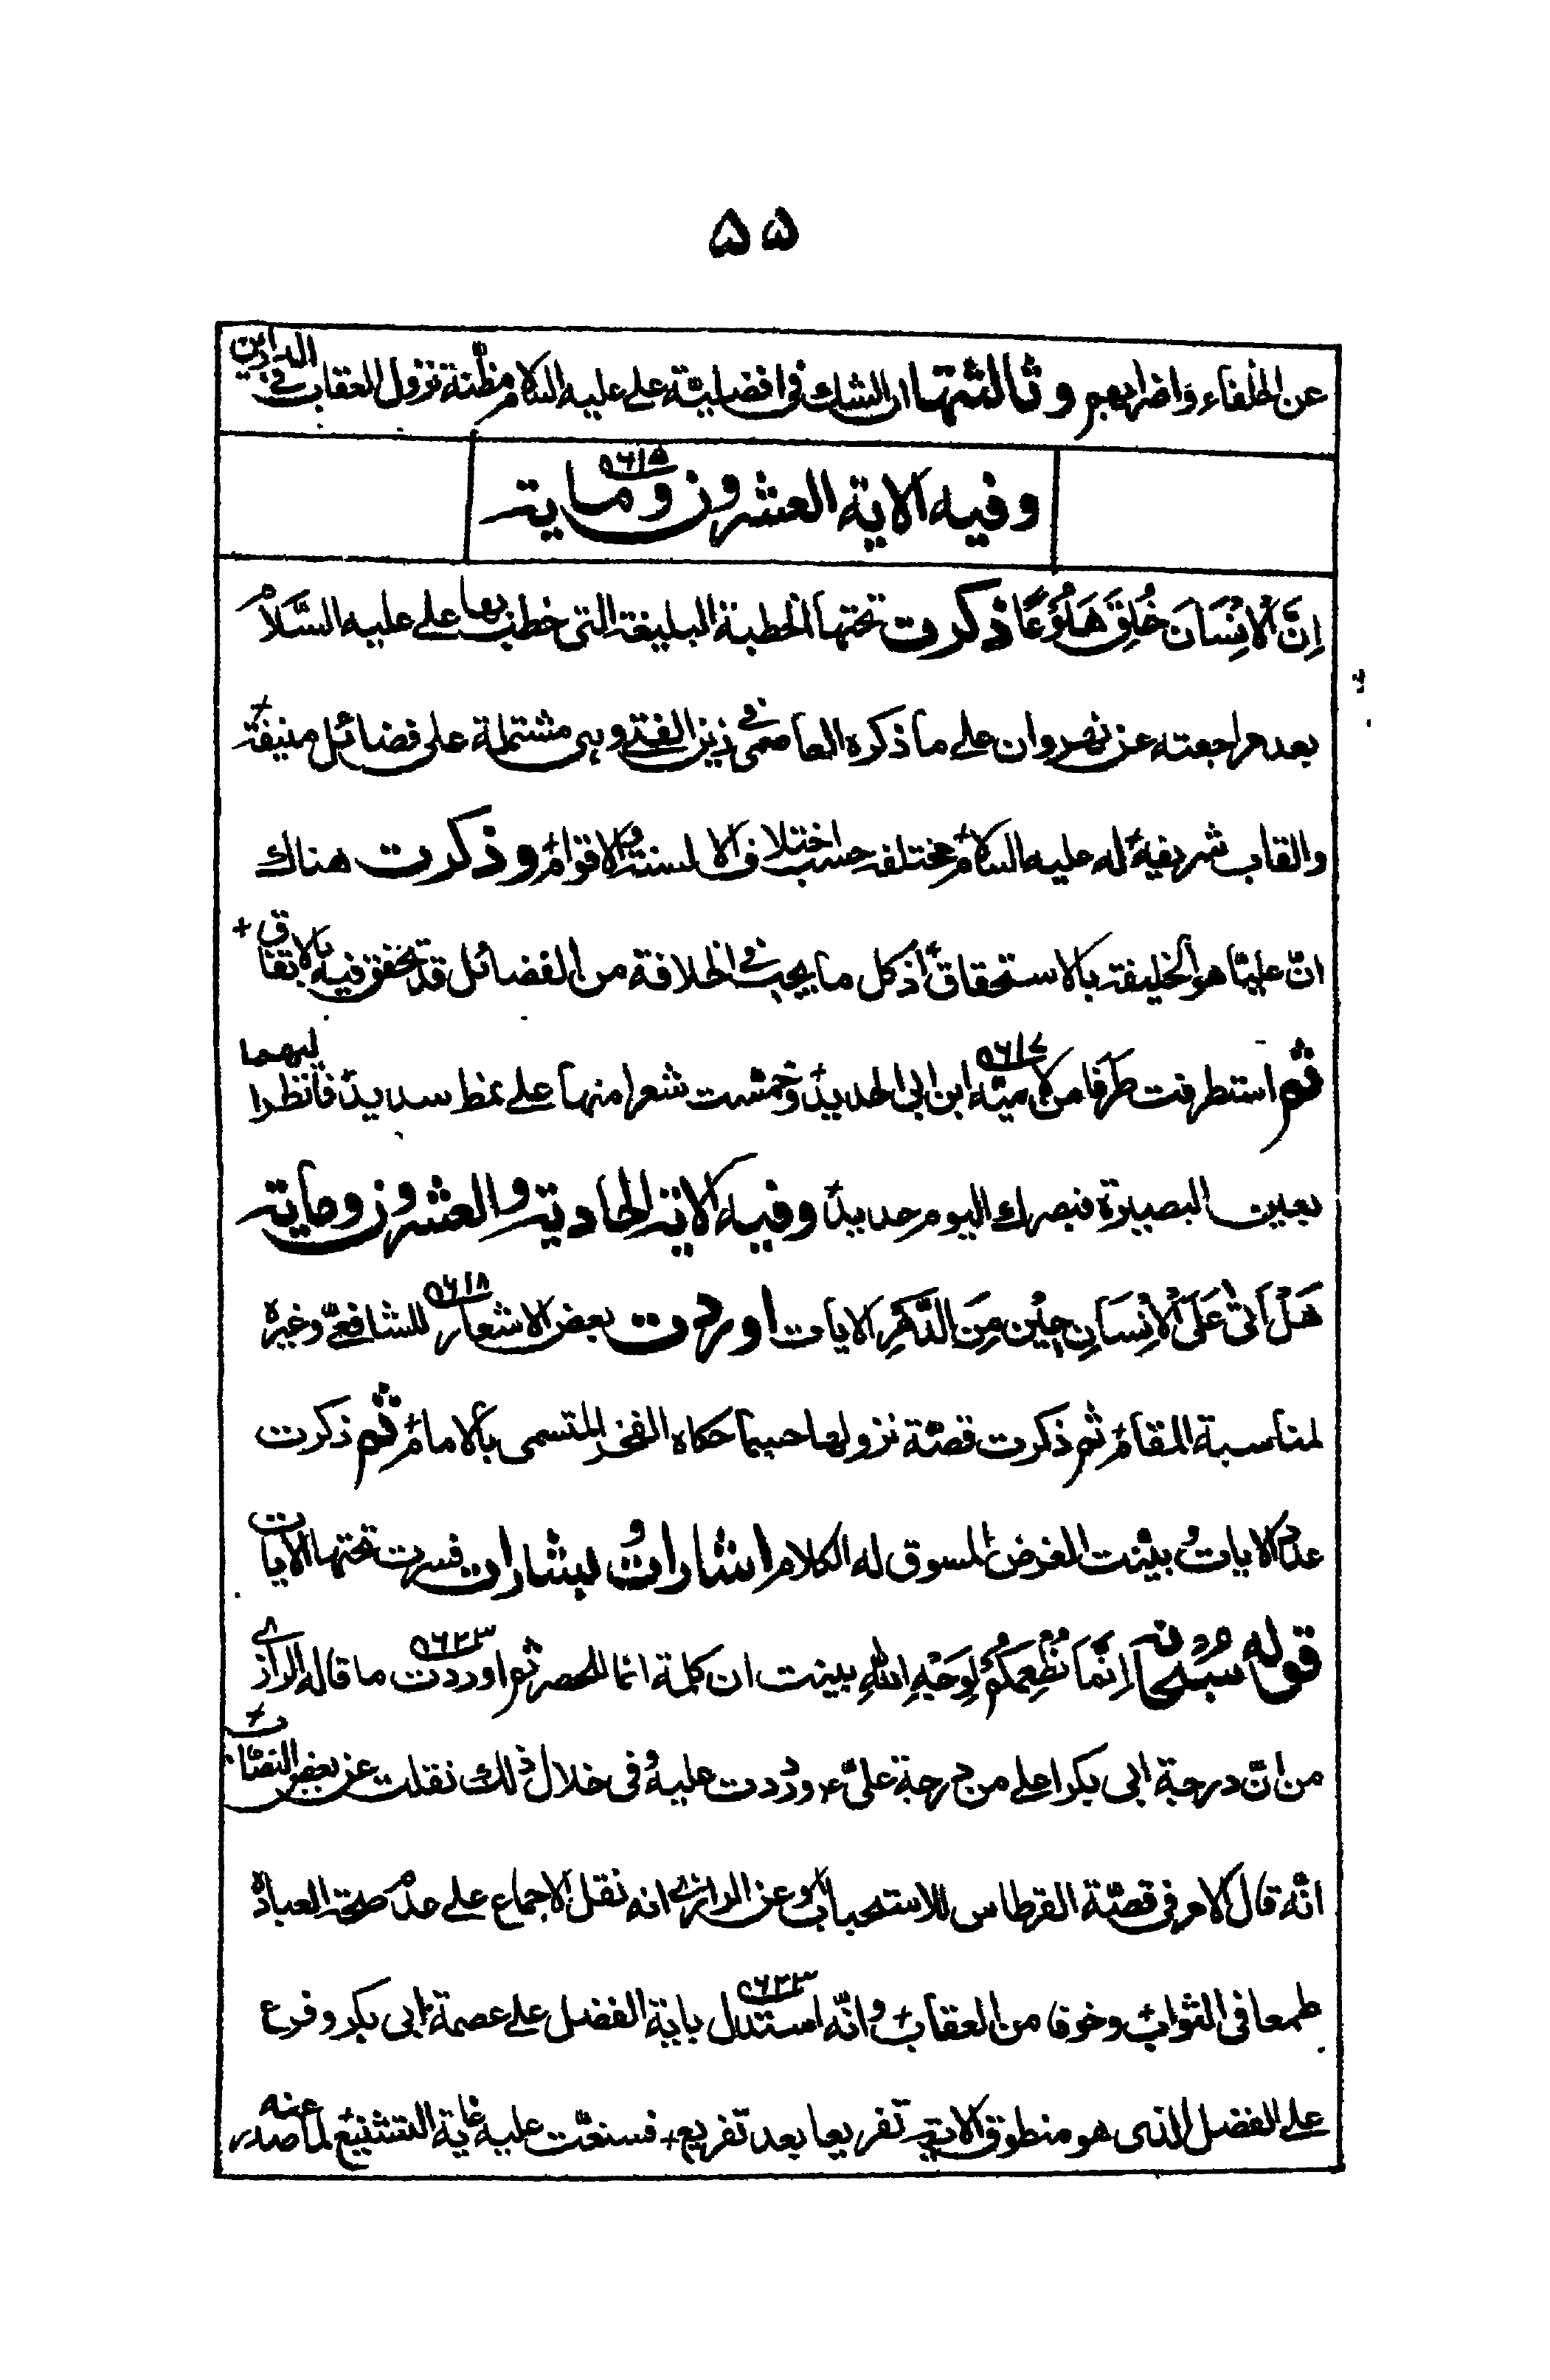 ۵۵
عن الخلفاء واضرابهم وثالثتها ان الشك فى افضليّة على عليه السلام مظنّة نزول العقاب فى الدارين
۵۶۱۵
وفيه الاية العشرون وماية
اِنَّ الْاِنْسَانَ خُلِقَ هَلُوْعًا ذكرت تحتها الخطبة البليغة التى خطب بها على عليه السَّلَامْ
بعد مراجعته عن نهروان على ما ذكره العاصمى فى زين الفتى وهى مشتملة على فضائل منيفة
والقاب شريفة له عليه السلام مختلفة حسب اختلاف الالسنة والاقوام وذكرت هناك
انّ عليّا هو الخليفة بالاستحقاق اذ كل ما يجب فى الخلافة من الفضائل قد تحقق فيه بالاتفاق
۵۶۱۷
ثم استطرفت طرفا من لاميّة ابن ابى الحديد وخمّست شعرا منها على نمط سديد فانظر اليهما
بعين البصيرة فبصرك اليوم حديد وفيه الاية الحادية والعشرون وماية
۵۶۱۸
هَلْ اَتٰى عَلَى الْاِنْسَانِ حِيْنٌ مِنَ الدَّهْرِ الايات اوردت بعض الاشعار للشافعىّ وغيره
لمناسبة المقام ثم ذكرت قصّة نزولها حسبما حكاه الفخر المتسمى بالامام ثم ذكرت
عدد الايات وبيّنت الغرض المسوق له الكلام اشارات وبشارات فسرت تحتها الايات
۵۶۲۳
قوله سبحانه اِنَّمَا نُطْعِمُكُمْ لِوَجْهِ اللّٰهِ بينت ان كلمة انما للحصر ثم اوردت ما قاله الرازى
من انّ درجة ابى بكر اعلى من درجة علىّ ع ورددت عليه وفى خلال ذلك نقلت عن بعض النصّاب
انّه قال الامر فى قصّة القرطاس للاستحباب وعن الرازى انه نقل الاجماع على عدم صحة العبادة
۵۶۳۳
طمعا فى الثواب وخوفا من العقاب وانّه استدل باية الفضل على عصمة ابى بكر وفرع
على الفضل الذى هو منطوق الاية تفريعا بعد تفريع فشنعت عليه غاية التشنيع لما صدر عنه